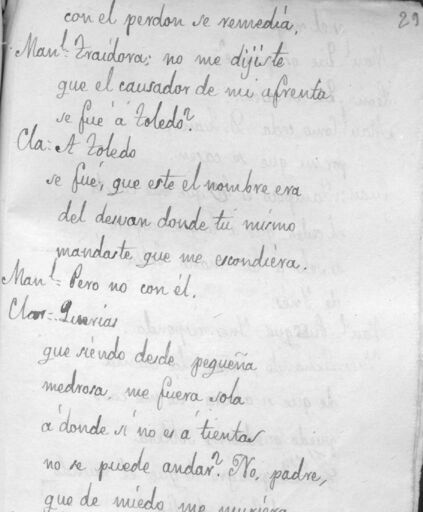 29
con el perdon se remedia.
Man.l= Traidora: no me dijiste
que el causador de mi afrenta
se fué á Toledo?
Cla: A Toledo
se fué, que este el nombre era
del desvan donde tu mismo
mandaste que me escondiéra.
Man.l- Pero no con él.
Clar= Querias
que siendo desde pequeña
medrosa, me fuera sola
á donde si no es á tientas
no se puede andar? No, padre,
que de miedo me muriera